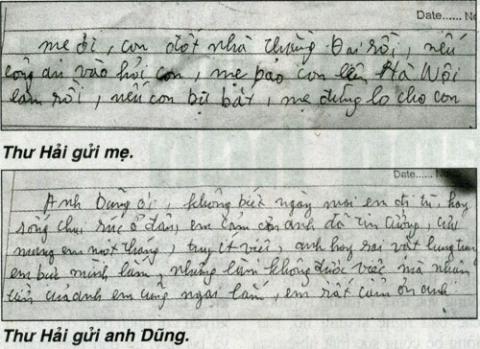 Date...... No
mẹ ơi, con đốt nhà thằng Đại rồi, nếu
công an vào hỏi con, mẹ bảo con lên Hà Nội
làm rồi, nếu con bị bắt, mẹ đừng lo cho con
Thư Hải gửi mẹ.
Date..... N
Anh Dũng ơi, không biết ngày mai em đi tù, hay
sống chui rúc ở đâu, em cảm ơn anh đã tin tưởng, cưu
mang em một tháng, tuy ít việc, anh hay sai vặt lung tung
em bực mình lắm, nhưng làm không được việc mà nhận
tiền của anh em cũng ngại lắm, em rất cảm ơn anh
Thư Hải gửi anh Dũng.